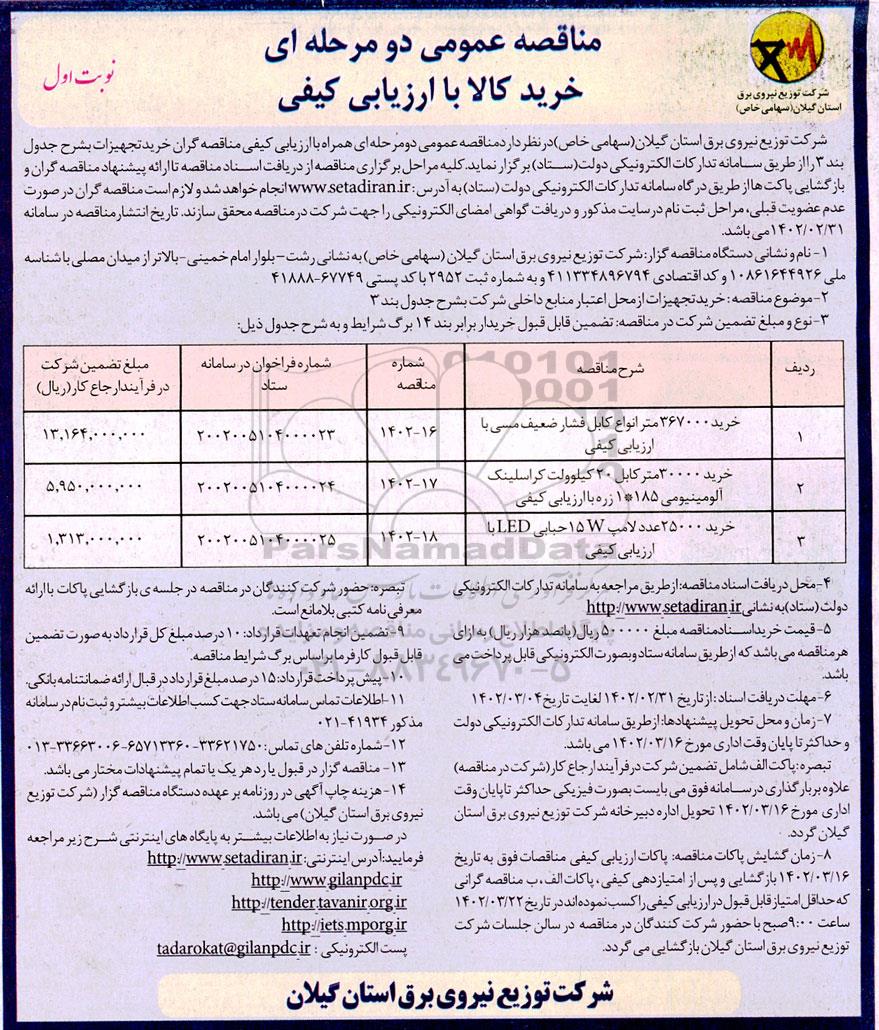 مناقصه عمومی دو مرحله ای
خرید کالا با ارزیابی کیفی
نوبت اول
شرکت توزیع نیروی برق
استان گیلان(سهامی خاص)
شرکت توزیع نیروی برق استان گیلان(سهامی خاص)درنظر دارد مناقصه عمومی دومرحله ای همراه با ارزیابی کیفی مناقصه گران خرید تجهیزات بشرح جدول
بند ۳ را از طریق سامانه تدارکات الکترونیکی دولت(ستاد) برگزار نماید.کلیه مراحل برگزاری مناقصه از دریافت اسناد مناقصه تا ارائه پیشنهاد مناقصه گران و
بازگشایی پاکت ها از طریق درگاه سامانه تدارکات الکترونیکی دولت (ستاد) به آدرس : www.setadiran.ir انجام خواهد شد و لازم است مناقصه گران در صورت
عدم عضویت قبلی، مراحل ثبت نام درسایت مذکور و دریافت گواهی امضای الکترونیکی را جهت شرکت در مناقصه محقق سازند. تاریخ انتشار مناقصه در سامانه
۱۴۰۲/۰۲/۳۱ می باشد.
۱- نام و نشانی دستگاه مناقصه گزار: شرکت توزیع نیروی برق استان گیلان (سهامی خاص) به نشانی رشت-بلوار امام خمینی-بالاتر از میدان مصلی با شناسه
ملی ۱۰۸۶۱۶۴۴۹۲۶ و کد اقتصادی ۴۱۱۳۳۴۸۹۶۷۹۴ و به شماره ثبت ۲۹۵۲ با کد پستی ۶۷۷۴۹-۴۱۸۸۸
۲-موضوع مناقصه : خرید تجهیزات از محل اعتبار منابع داخلی شرکت بشرح جدول بند ۳
۳-نوع و مبلغ تضمین شرکت در مناقصه: تضمین قابل قبول خریدار برابر بند ۱۴ برگ شرایط و به شرح جدول ذیل:
ردیف شرح مناقصه شماره مناقصه شماره فراخوان در سامانه ستاد مبلغ تضمین شرکت در فرآیند ارجاع کار(ریال)
۱ خرید ۳۶۷۰۰۰ متر انواع کابل فشار ضعیف مسی با ارزیابی کیفی ۱۴۰۲-۱۶ ۲۰۰۲۰۰۵۱۰۴۰۰۰۰۲۳ ۱۳,۱۶۴,۰۰۰,۰۰۰
۲ خرید ۳۰۰۰۰متر کابل ۲۰ کیلوولت کراسلینک آلومینیومی ۱۸۵*۱ زره با ارزیابی کیفی ۱۴۰۲-۱۷ ۲۰۰۲۰۰۵۱۰۴۰۰۰۰۲۴ ۵,۹۵۰,۰۰۰,۰۰۰
۳ خرید ۲۵۰۰۰عدد لامپ ۱۵W حبابی LED با ارزیابی کیفی ۱۴۰۲-۱۸ ۲۰۰۲۰۰۵۱۰۴۰۰۰۰۲۵ ۱,۳۱۳,۰۰۰,۰۰۰
ParsNamadData
۰۲۱-۸۸۳۴۹۶۷۰-۵
۴-محل دریافت اسناد مناقصه: از طریق مراجعه به سامانه تدارکات الکترونیکی
دولت (ستاد) به نشانی http://www.setadiran.ir
۵- قیمت خرید اسناد مناقصه مبلغ ۵۰۰۰۰۰ ریال (پانصد هزار ریال) به ازای
هر مناقصه می باشد که از طریق سامانه ستاد و بصورت الکترونیکی قابل پرداخت می
باشد.
۶- مهلت دریافت اسناد : از تاریخ ۱۴۰۲/۰۲/۳۱ لغایت تاریخ ۱۴۰۲/۰۳/۰۴
۷- زمان و محل تحویل پیشنهادها: از طریق سامانه تدارکات الکترونیکی دولت
و حداکثر تا پایان وقت اداری مورخ ۱۴۰۲/۰۳/۱۶ می باشد.
تبصره: پاکت الف شامل تضمین شرکت در فرآیند ارجاع کار (شرکت در مناقصه)
علاوه بر بارگذاری در سامانه فوق می بایست بصورت فیزیکی حداکثر تا پایان وقت
اداری مورخ ۱۴۰۲/۰۳/۱۶ تحویل اداره دبیرخانه شرکت توزیع نیروی برق استان
گیلان گردد.
۸- زمان گشایش پاکات مناقصه: پاکات ارزیابی کیفی مناقصات فوق به تاریخ
۱۴۰۲/۰۳/۱۶ بازگشایی و پس از امتیازدهی کیفی ، پاکات الف،ب مناقصه گرانی
که حداقل امتیاز قابل قبول در ارزیابی کیفی را کسب نموده اند در تاریخ ۱۴۰۲/۰۳/۲۲
ساعت ۹:۰۰ صبح با حضور شرکت کنندگان در مناقصه در سالن جلسات شرکت
توزیع نیروی برق استان گیلان بازگشایی می گردد.
تبصره: حضور شرکت کنندگان در مناقصه در جلسه ی بازگشایی پاکات با ارائه
معرفی نامه کتبی بلامانع است.
۹- تضمین انجام تعهدات قرارداد: ۱۰ درصد مبلغ کل قرارداد به صورت تضمین
قابل قبول کارفرما براساس برگ شرایط مناقصه.
۱۰- پیش پرداخت قرارداد: ۱۵ درصد مبلغ قرارداد در قبال ارائه ضمانتنامه بانکی.
۱۱-اطلاعات تماس سامانه ستاد جهت کسب اطلاعات بیشتر و ثبت نام در سامانه
مذکور ۴۱۹۳۴-۰۲۱
۱۲-شماره تلفن های تماس: ۳۳۶۲۱۷۵۰-۶۵۷۱۳۳۶۰-۳۳۶۶۳۰۰۶-۰۱۳
۱۳- مناقصه گزار در قبول یا رد هر یک یا تمام پیشنهادات مختار می باشد.
۱۴- هزینه چاپ آگهی در روزنامه بر عهده دستگاه مناقصه گزار (شرکت توزیع
نیروی برق استان گیلان) می باشد.
در صورت نیاز به اطلاعات بیشتر به پایگاه های اینترنتی شرح زیر مراجعه
فرمایید: آدرس اینترنتی: http://www.setadiran.ir
http://www.gilanpdc.ir
http://tender.tavanir.org.ir
http://iets.mporg.ir
پست الکترونیکی : tadarokat@gilanpdc.ir
شرکت توزیع نیروی برق استان گیلان